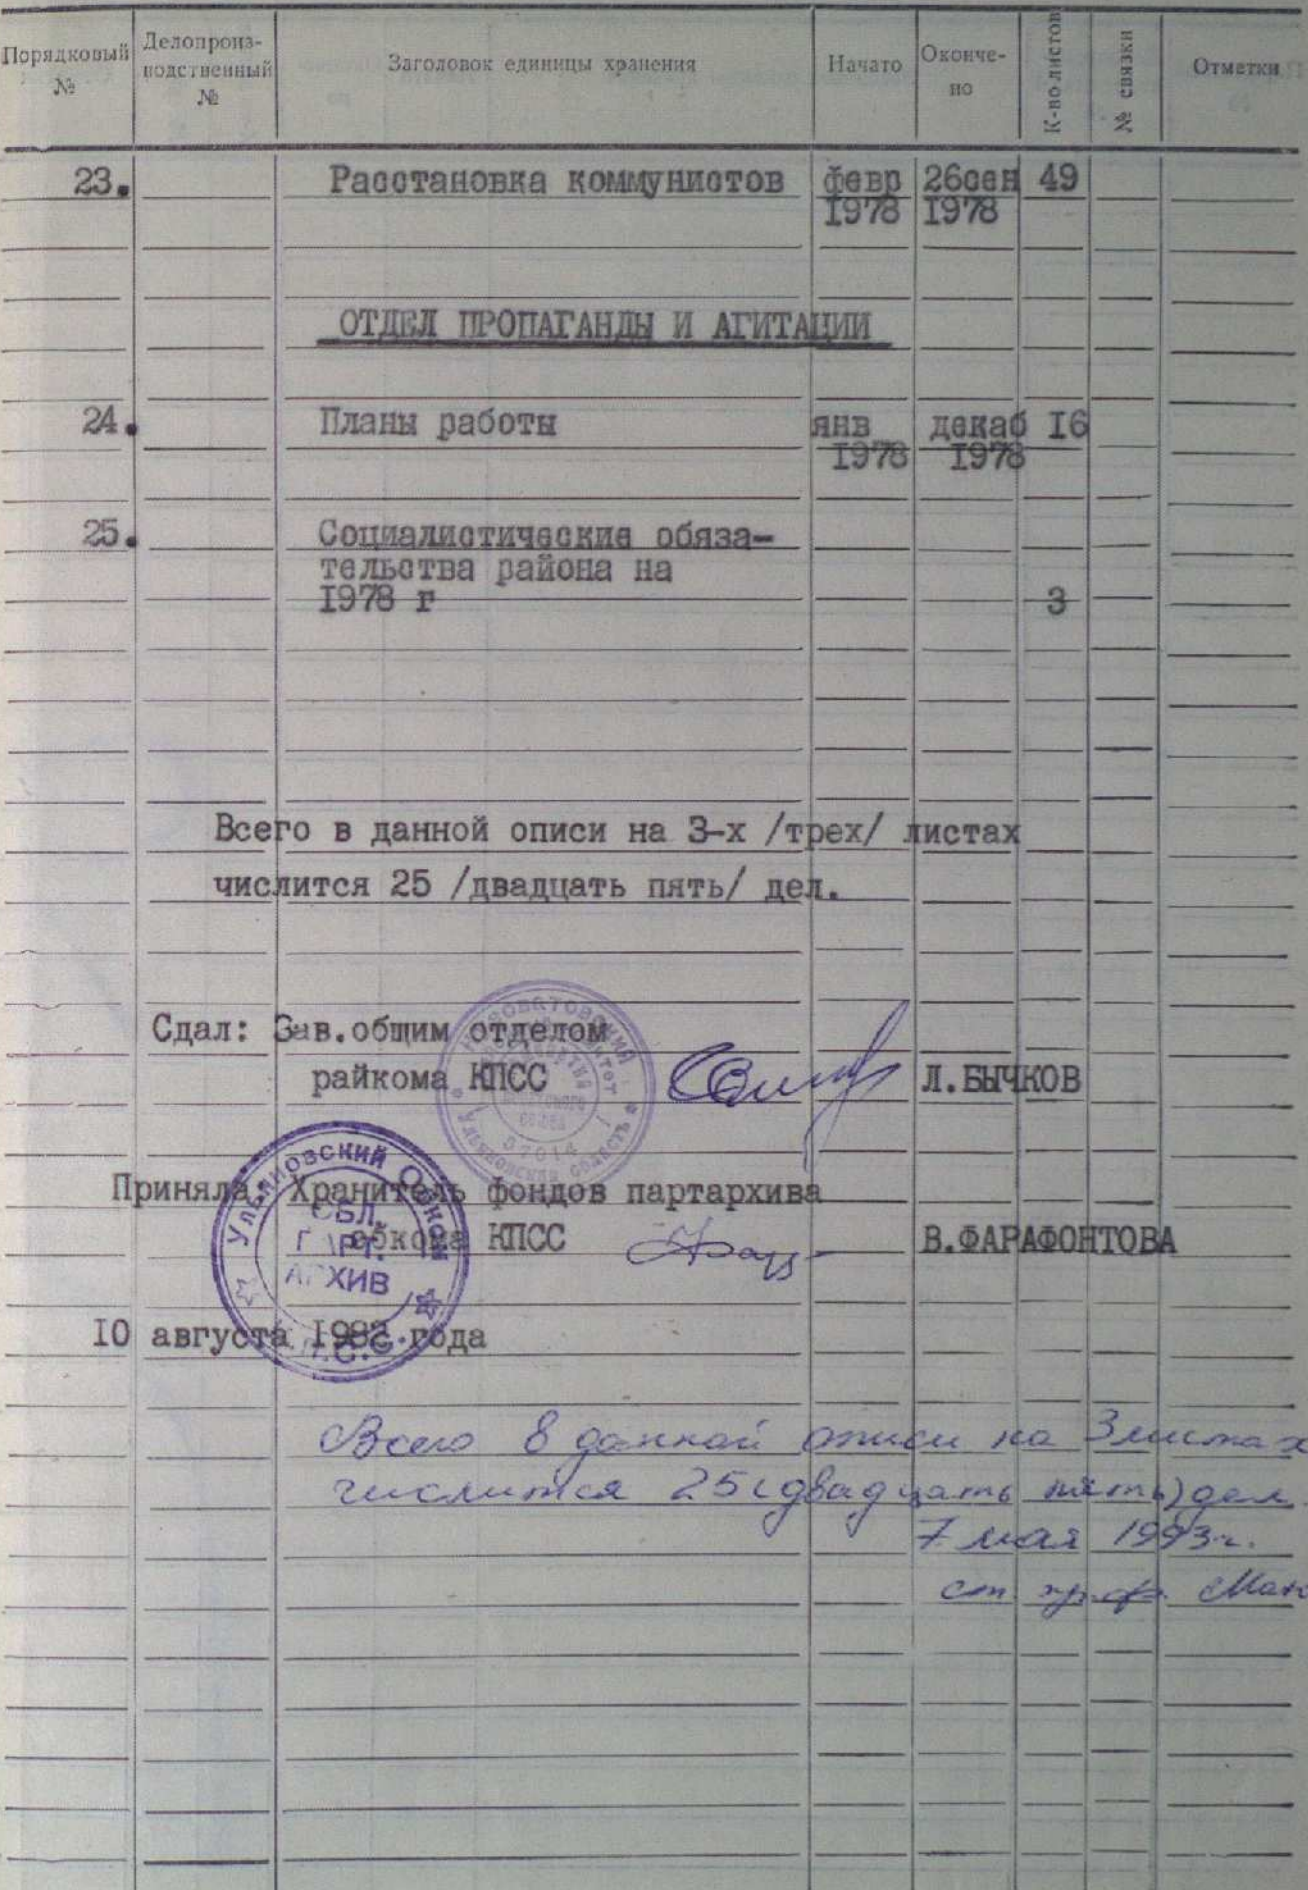 Порядковый № Делопроиз-водственный № Заголовок единицы хранения Начато Окончено К-во листов № связки Отметки
23. Расстановка коммунистов февр 26сен 49
1978 1978
ОТДЕЛ ПРОПАГАНДЫ И АГИТАЦИИ
24. Планы работы янв декаб 16
1978 1978
25. Социалистические обяза-
тельства района на
1978 г 3
Всего в данной описи на 3-х /трех/ листах
числится 25 /двадцать пять/ дел.
Сдал: Зав.общим отделом
райкома КПСС Л.БЫЧКОВ
Приняла: Хранитель фондов партархива
обкома КПСС В.ФАРАФОНТОВА
Ульяновский Обком
ОБЛ.
ПАРТ.
АРХИВ
К.П.С.С.
10 августа 1982 года
Всего в данной описи на 3 листах
числится 25 (двадцать пять) дел
7 мая 1993 г.